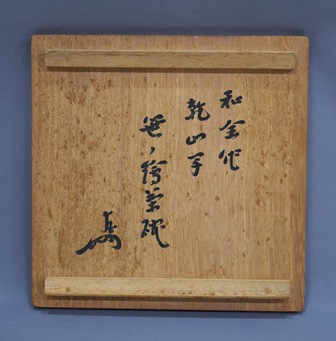 和全作
乾山手
笹ノ繪茶碗